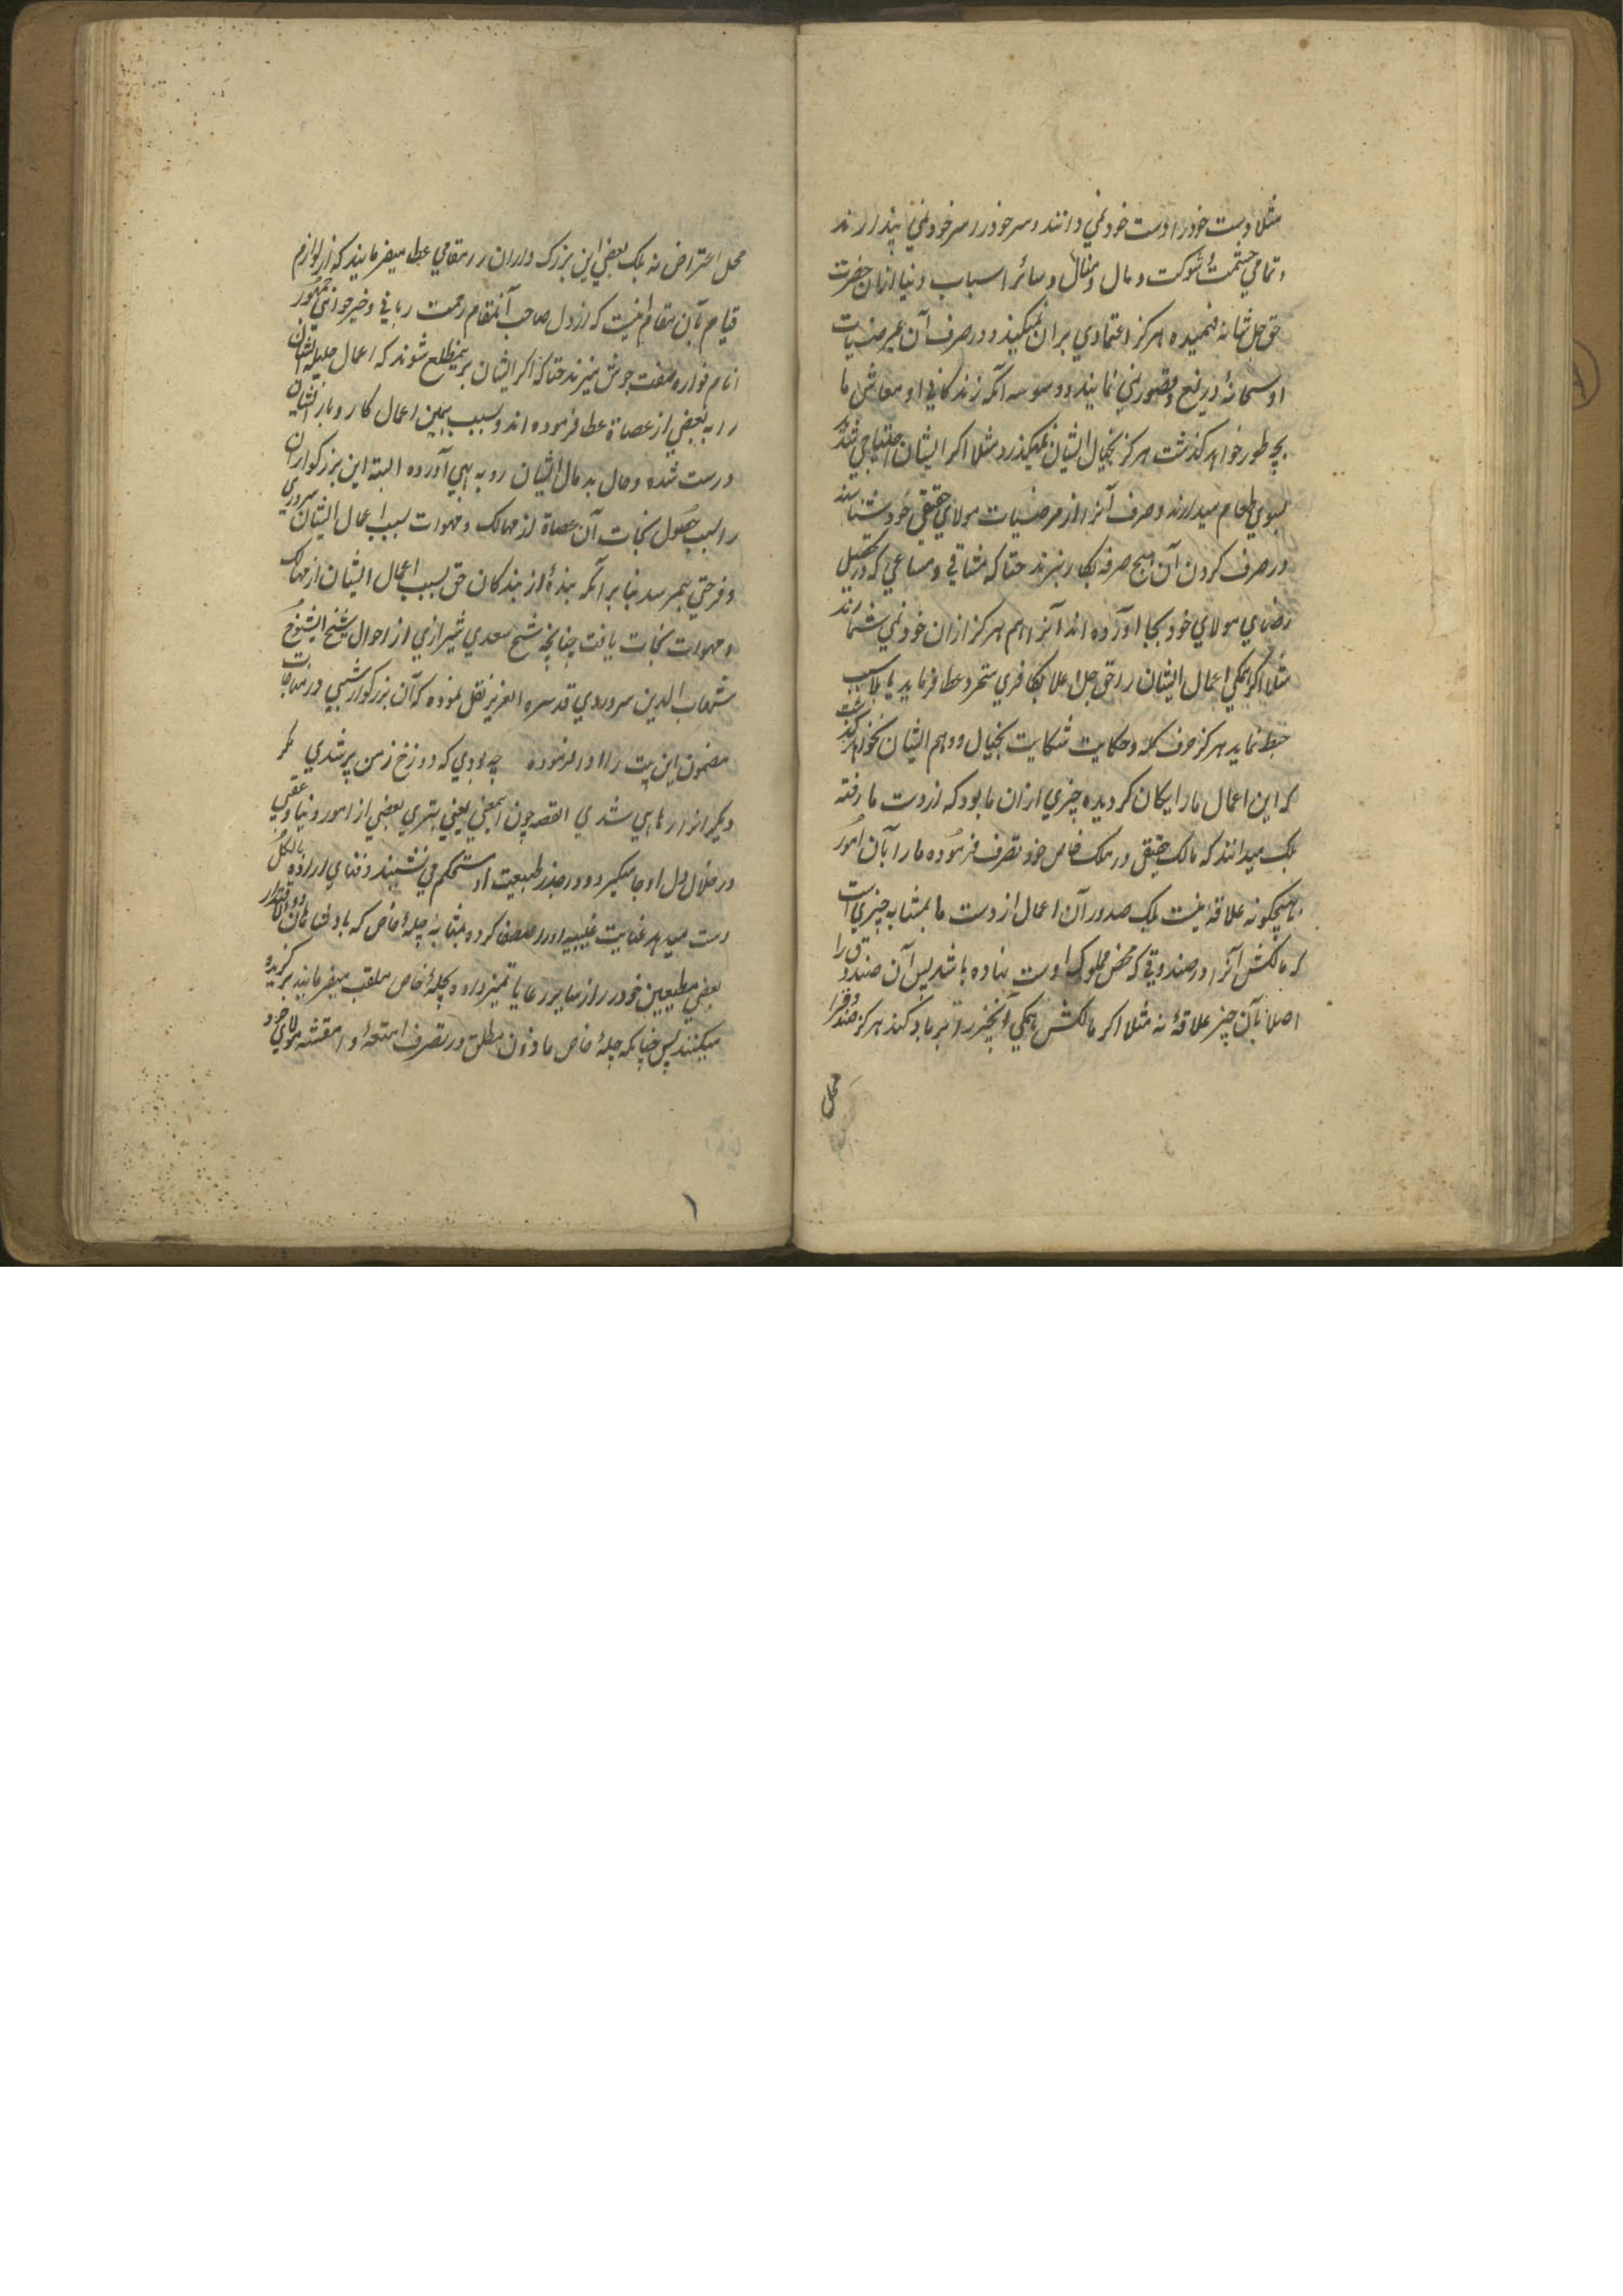 مثلا دست خود را دست خود نمي دانند و سر خود را سر خود نمي پندارند
و تمامي حشمت و شوكت و مال و منال و سائر اسباب دنيا ازان حضرت
حق جل شانه فهميده هركز اعتمادي بران نميكنند و در صرف آن بمرضيات
او سبحانه دريغ و قصور نمي نمايند و وسوسه آنكه زندكاني و معاش ما
بچه طور خواهد كذشت هركز بخيال ايشان نميكذرد مثلا اكر ايشان احتياجي شديد
بسوي طعام ميدارند و صرف آنرا از مرضيات مولاي حقيقي خود شناسند
در صرف كردن آن هيچ صرفه بكار نبرند حتا كه مشاقي و مساعي كه در تحصيل
رضاي مولاي خود بجا آورده اند آنرا هم هركز ازان خود نمي شمارند
مثلا اكر همكي اعمال ايشان را حق جل و علا بكافري متمرد عطا فرمايد يا بلا سبب
حبط نمايد هركز حرف كله و حكايت شكايت بخيال و وهم ايشان نخواهد كذشت
كه اين اعمال ما را يكان كرديده چيزي ازان ما بود كه از دست ما رفته
بلكه ميدانند كه مالك حقيقي در ملك خاص خود تصرف فرموده ما را بآن امور
هيچكونه علاقه نيست بلكه صدور آن اعمال از دست ما بمثابه چيزي است
كه مالكش آنرا در صندوقي كه محض مملوك اوست نهاده باشد پس آن صندوق را
اصلا بآن چيز علاقه نه مثلا اكر مالكش همكي آنچيز را برباد كند هركز صندوق را
محل
محل اعتراض نه بلكه بعضي اين بزرك واران را مقامي عطا ميفرمايند كه از لوازم
قيام بآن مقام اينست كه از دل صاحب آنمقام رحمت رباني و خير خواهي جمهور
انام فواره صفت جوش ميزند حتا كه اكر ايشان برين مطلع شوند كه اعمال جليله ايشان
را به بعضي از عصاة عطا فرموده اند و بسبب همين اعمال كار و بار ايشان
درست شده و حال بد مال ايشان رو به بهي آورده البته اين بزركواران
را بسبب حصول نجات آن عصاة از مهالك و مهوات بسبب اعمال ايشان سروري
و فرحتي بهم رسد بنا بر آنكه بنده از بندكان حق بسبب اعمال ايشان از مهالك
و مهوات نجات يافت چنانچه شيخ سعدي شيرازي از احوال شيخ الشيوخ
شهاب الدين سروردي قدسره العزيز نقل نموده كه آن بزركوار شبي در مناجات
مضمون اين بيت را ادا فرموده چه بودي كه دوزخ ز من پر شدي مكر
ديكرانرا رهايي شدي القصه چون اينمعني يعني بهتري بعضي از امور دنيا و عقبي
در خلال دل او جا ميكيرد و در جذر طبيعت او مستحكم مي نشيند و فناي اراده بالكل
دست ميدهد عنايت غيبيه او را مصفي كرده بمثابه چيله خاص كه بادشاهان ذو الاقتدار
بعضي مطيعين خود را از ساير رعايا تميز داده بچيله خاص ملقب ميفرمايند بركزيده
ميكنند پس چنانكه چيله خاص ماذون مطلق در تصرف امتعه و اقمشه مولاي خود